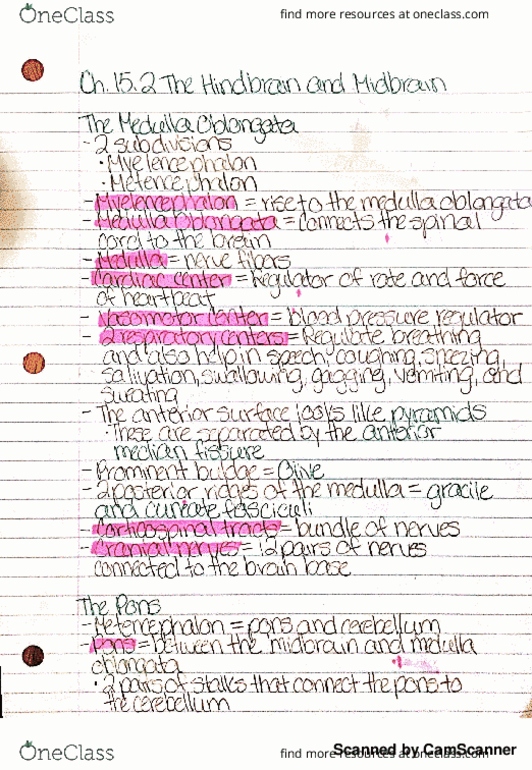 OneClass
find more resources at oneclass.com
Ch. 15.2 The Hindbrain and Midbrain
The Medulla Oblongata
- 2 subdivisions
· Myelencephalon
· Metencephalon
- Myelencephalon = rise to the medulla oblongata
- Medulla Oblongata = connects the spinal
cord to the brain
- Medulla = nerve fibers
- Cardiac center = Regulator of rate and force
of heartbeat
- Vasomotor center = blood pressure regulator
- 2 respiratory centers = Regulate breathing
and also help in speech, coughing, sneezing,
salivation, swallowing, gagging, vomiting, and
sweating
- The anterior surface looks like pyramids
· These are separated by the anterior
median fissure
- Prominent buldge = Olive
- 2 posterior ridges of the medulla = gracile
and cuneate fasciculi
- Corticospinal tracts = bundle of nerves
- Cranial nerves = 12 pairs of nerves
connected to the brain base
The Pons
- Metencephalon = pons and cerebellum
- Pons = between the midbrain and medulla
oblongata
· 2 pairs of stalks that connect the pons to
the cerebellum
OneClass
find more resources at oneclass.com
Scanned by CamScanner